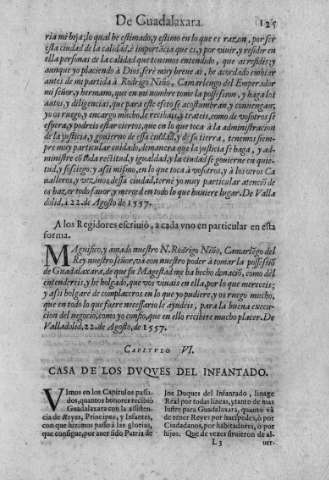 De Guadalaxara. 125
ria mi hija; lo qual he estimado, y estimo en lo que es razon, por ser
esta ciudad de la calidad, è importãcia que es, y por viuir, y residir en
ella personas de la calidad que tenemos entendido, que ai residẽ; y
aunque yo placiendo à Dios, serè muy breue ai, he acordado embiar
antes de mi partida à Rodrigo Niño, Camarlengo del Emperador
mi señor, y hermano, que en mi nombre tome la possession, y haga los
autos, y diligencias, que para este efeto se acostumbran, y conuengan;
yo os ruego, y encargo mucho, le recibais, y trateis, como de vosotros se
espera, y podreis estar ciertos, que en lo que toca à la administracion
de la justicia, y gouierno de essa ciudad, y de su tierra, tenemos siem-
pre muy particular cuidado, de manera que la justicia se haga, y ad-
ministre cõ toda rectitud, igualdad, y la ciudad se gouierne en quie-
tud, y sossiego: y assi mismo, en lo que toca à vosotros, y à los otros Ca
ualleros, y vezinos dessa ciudad, ternè yo muy particular atenciõ de
os hazer todo fauor, y merced en todo lo que huuiere lugar. De Valla
dolid, à 22. de Agosto de 1557.
A los Regidores escriuiò, a cada vno en particular en esta
forma.
MAgnifico, y amado nuestro N. Rodrigo Niño, Camarlẽgo del
Rey nuestro señor, và con nuestro poder à tomar la possessiõ
de Guadalaxara, de que su Magestad me ha hecho donaciõ, como dèl
entendereis, y he holgado, que vos viuais en ella, por lo que mereceis;
y assi holgarè de complaceros en lo que yo pudiere, y os ruego mucho,
que en todo lo que fuere necessario le ayudeis, para la buena execu-
cion del negocio, como yo confio, que en ello recibirè mucho placer. De
Valladolid, 22. de Agosto, de 1557.
CAPITVLO VI.
CASA DE LOS DVQVES DEL INFANTADO.
VImos en los Capitulos passa-
dos, quantos honores recibiò
Guadalaxara con la assisten-
cia de Reyes, Principes, y Infantes,
con que hizimos passo à las glorias,
que consigue, por auer sido Patria de
los Duques del Infantado, linage
Real por todas lineas, y tanto de mas
lustre para Guadalaxara, quanto và
de tener Reyes por huespedes, ò por
Ciudadanos, por habitadores, ò por
hijos. Que de vezes siruieron de al-
L 3 uer-